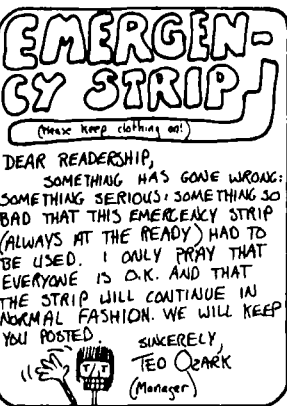 EMERGEN-
CY STRIP
(Please keep clothing on!)
DEAR READERSHIP,
SOMETHING HAS GONE WRONG:
SOMETHING SERIOUS: SOMETHING SO
BAD THAT THIS EMERGENCY STRIP
(ALWAYS AT THE READY) HAD TO
BE USED. I ONLY PRAY THAT
EVERYONE IS O.K. AND THAT
THE STRIP WILL CONTINUE IN
NORMAL FASHION. WE WILL KEEP
YOU POSTED.
SINCERELY,
TED OZARK
(Manager)